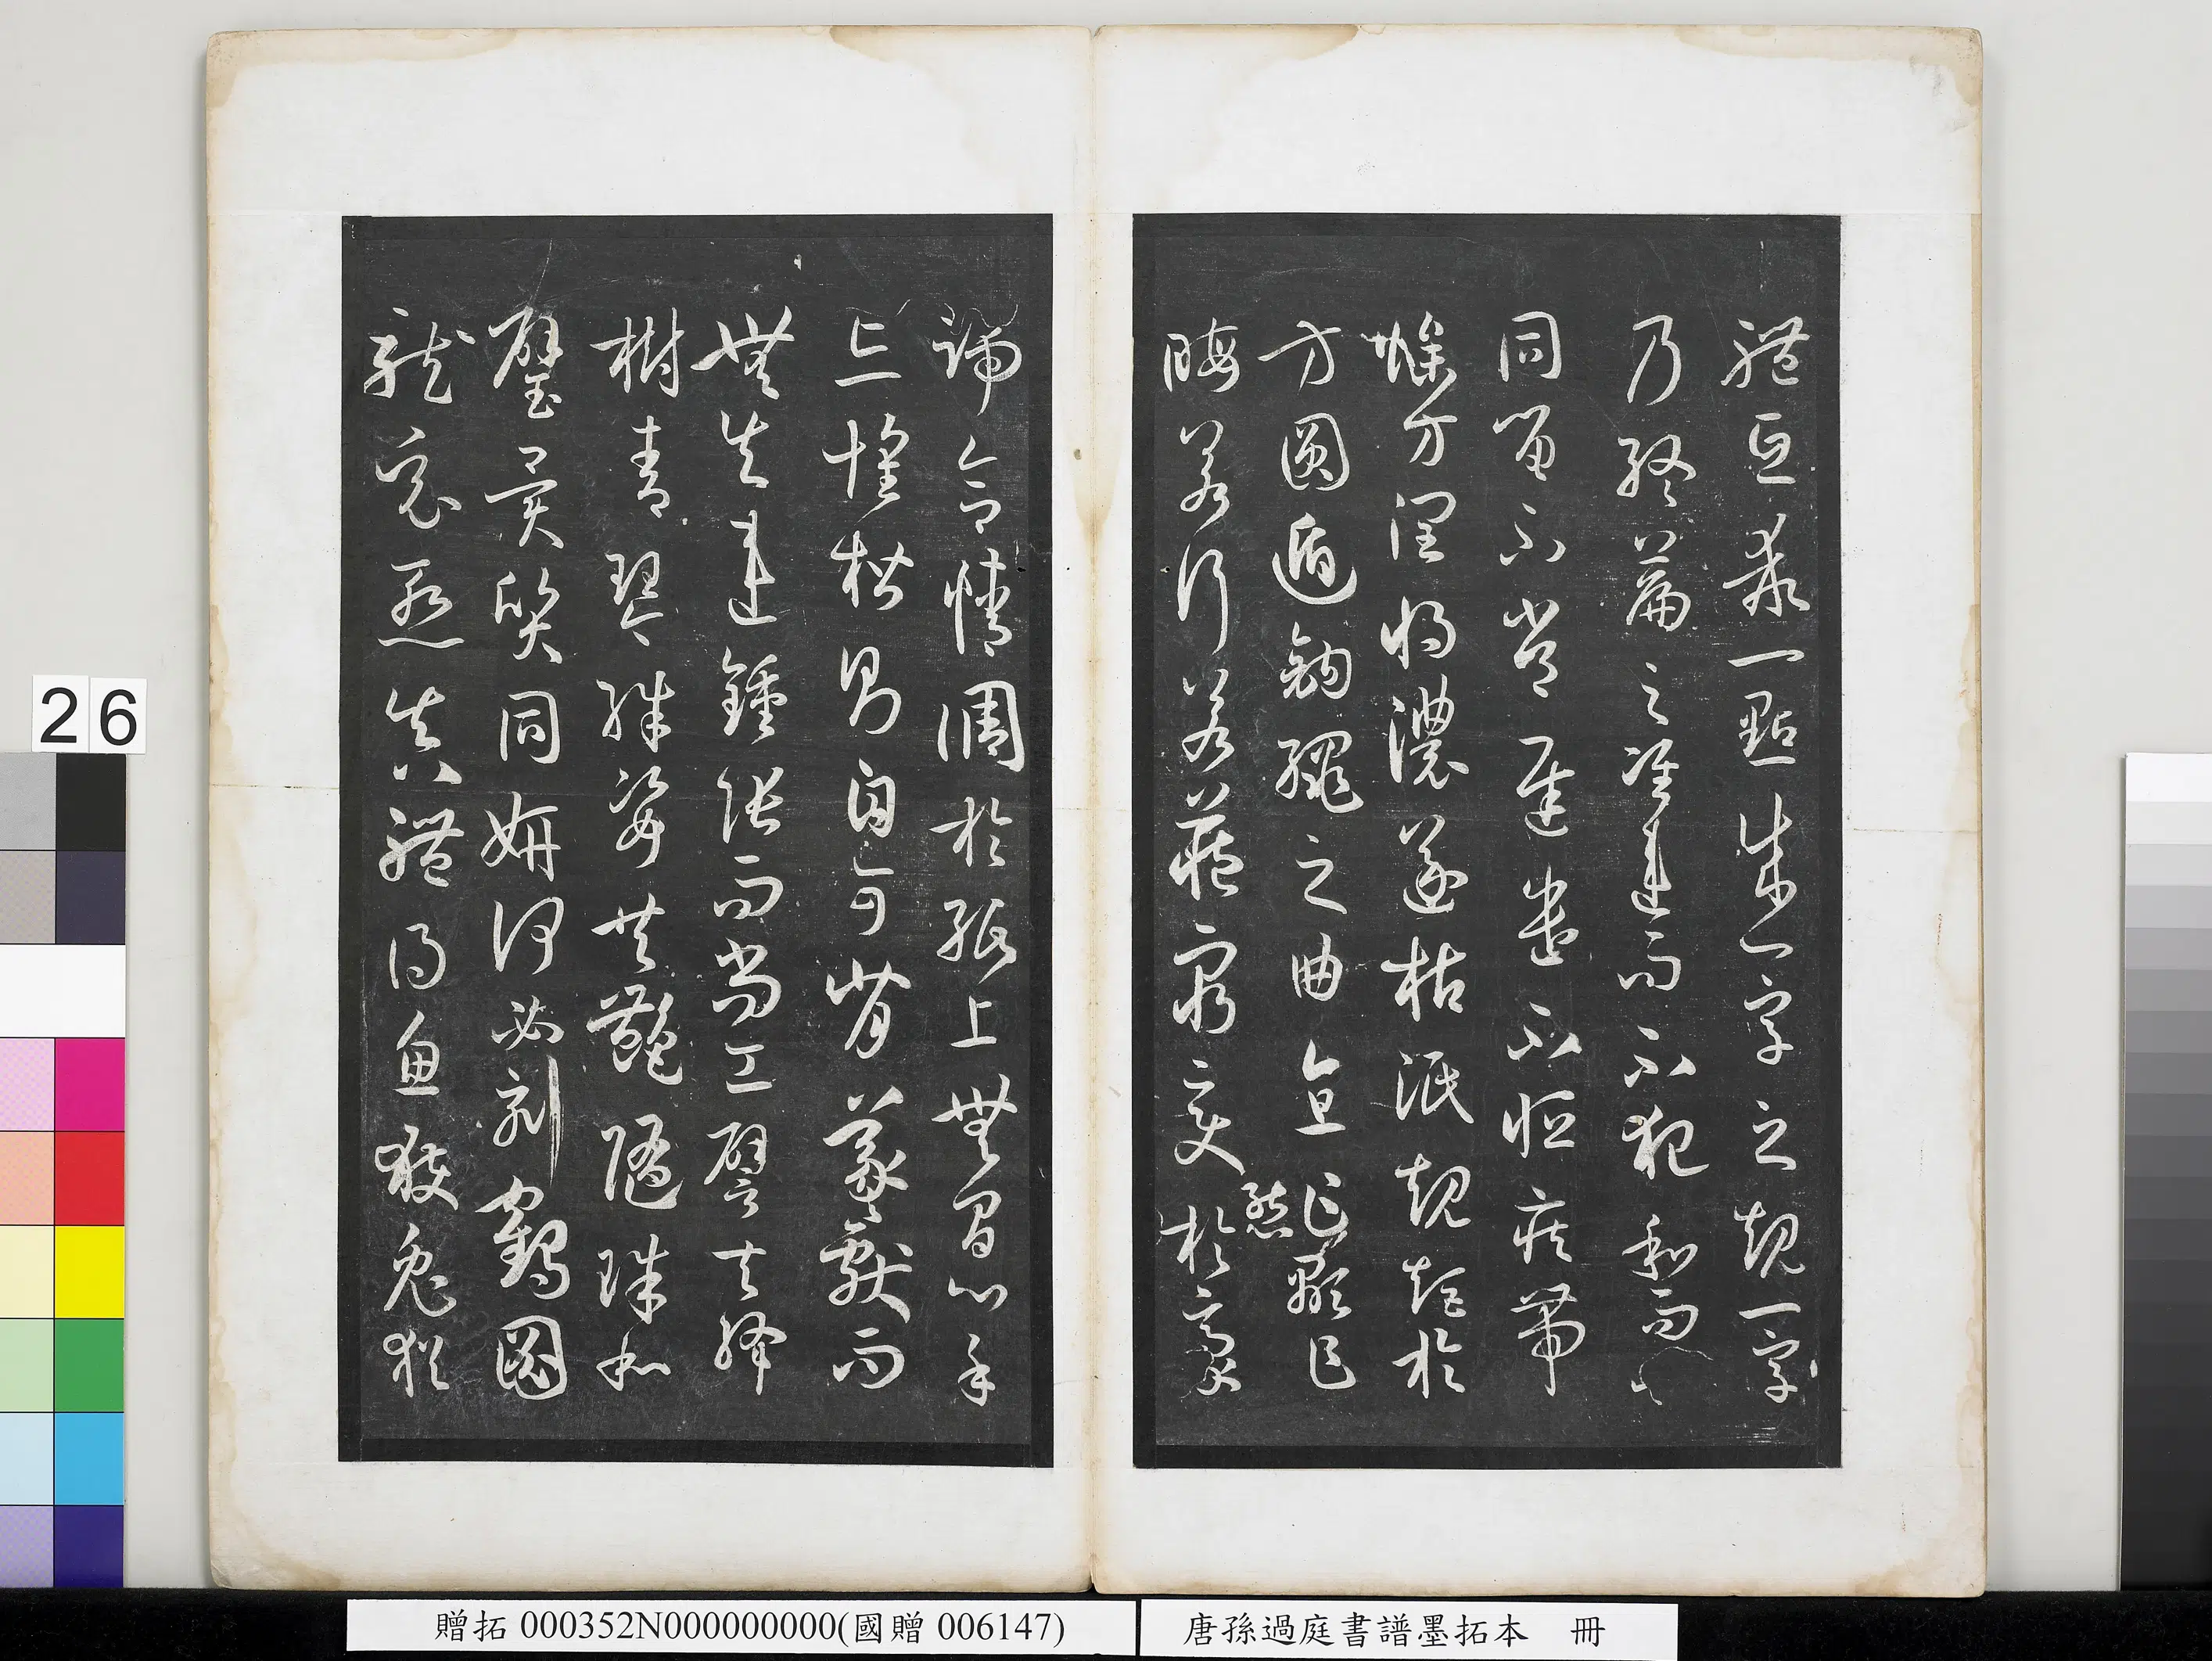 體互乖一點成一字之規一字
乃終篇之準違而不犯和而不
同留不常遲遣不恒疾帶
燥方潤將濃遂枯泯規矩於
方圓遁鉤繩之曲直乍顯乍
晦若行若藏窮變態於豪
端合情調於紙上無間心手
忘懷楷則自可背羲獻而
無失違鍾張而尚工譬夫絳
樹青琴殊姿共艷隨珠和
璧異質同妍何必刻鶴圖
龍竟慚真體得魚獲兔猶
26
贈拓 000352N000000000(國贈 006147)
唐孫過庭書譜墨拓本 冊